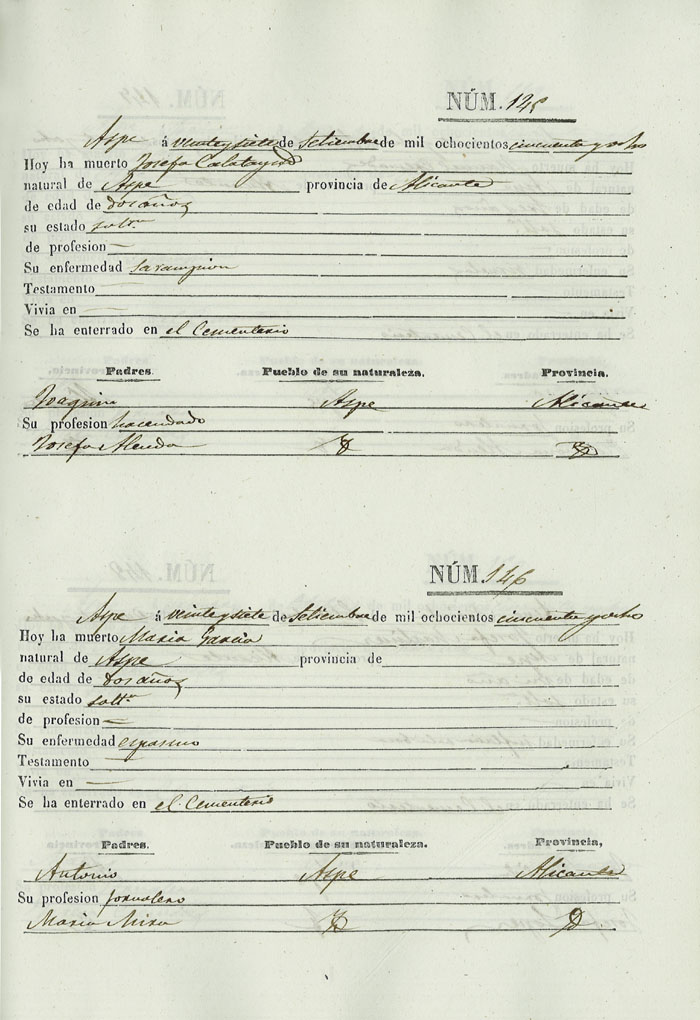 NÚM. 145
Aspe á veinte y siete de Setiembre de mil ochocientos cincuenta y ocho
Hoy ha muerto Josefa Calatayud
natural de Aspe provincia de Alicante
de edad de dos años
su estado solt.ª
de profesion —
Su enfermedad sarampion
Testamento —
Vivia en —
Se ha enterrado en el Cementerio
Padres. Pueblo de su naturaleza. Provincia.
Joaquin Aspe Alicante
Su profesion hacendado
Josefa Alenda
NÚM. 146
Aspe á veinte y siete de Setiembre de mil ochocientos cincuenta y ocho
Hoy ha muerto Maria Garcia
natural de Aspe provincia de
de edad de dos años
su estado solt.ª
de profesion —
Su enfermedad espasmo
Testamento —
Vivia en —
Se ha enterrado en el Cementerio
Padres. Pueblo de su naturaleza. Provincia.
Antonio Aspe Alicante
Su profesion jornalero
Maria Mira